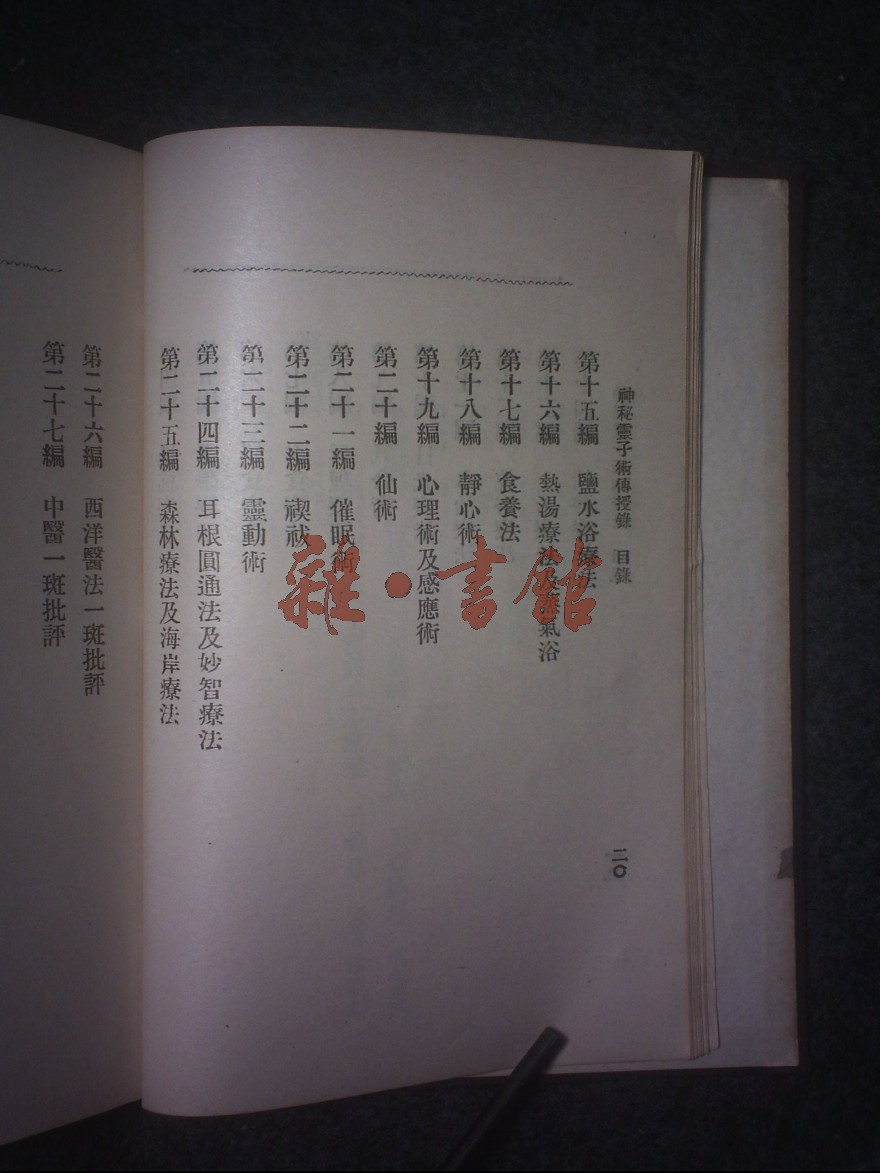 神秘靈子術傳授錄 目錄
二〇
第十五編 鹽水浴療法
第十六編 熱湯療法及蒸氣浴
第十七編 食養法
第十八編 靜心術
第十九編 心理術及感應術
第二十編 仙術
第二十一編 催眠術
第二十二編 禊祓
第二十三編 靈動術
第二十四編 耳根圓通法及妙智療法
第二十五編 森林療法及海岸療法
第二十六編 西洋醫法一斑批評
第二十七編 中醫一斑批評
雜·書館